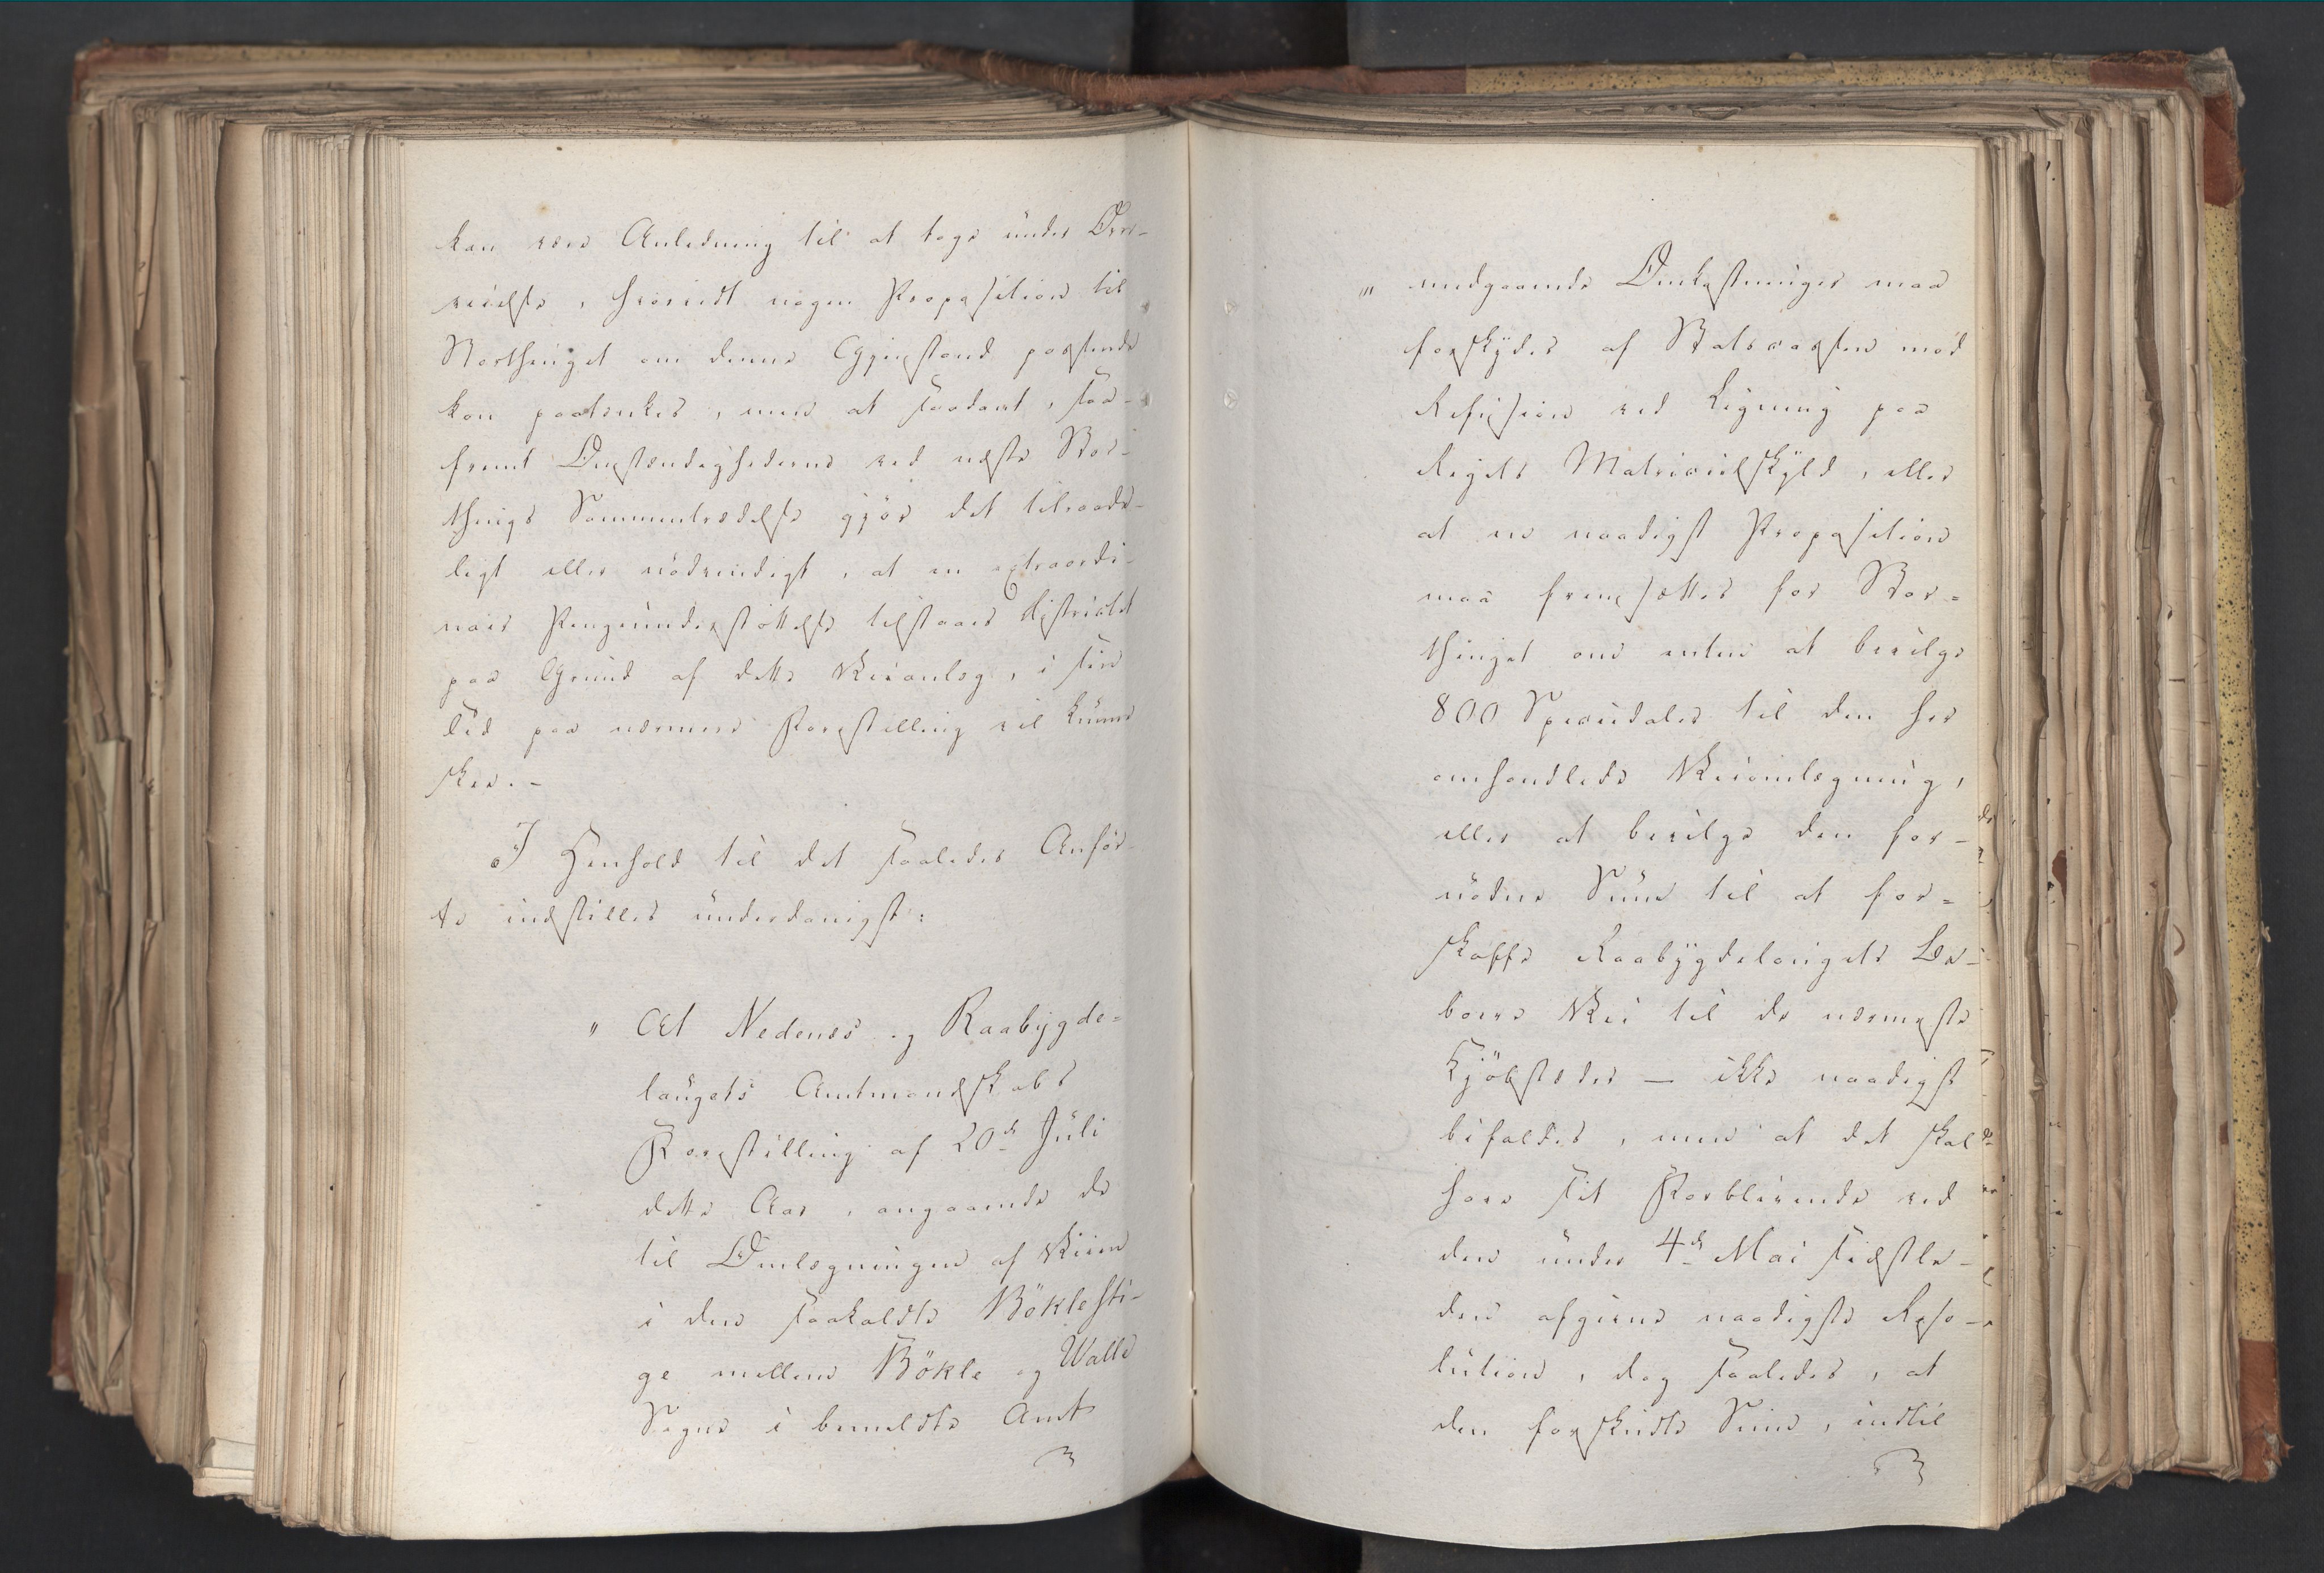 kan være Anledning til at tage under Over-
veielse, hvorvidt nogen Proposition til
Storthinget om denne Gjenstand passende
kan paatænkes, men at saadant, saa-
fremt Omstændighederne ved næste Stor-
things Sammentrædelse gjör det tilraade-
ligt eller nödvendigt, at en extraordi-
nair Pengeunderstöttelse tilstaaes Districtet
paa Grund af dette Veianlæg, i sin
Tid paa nærmere Forestilling vil kunne
skee. -
I Henhold til det saaledes Anför-
te indstilles underdanigst:
" At Nedenes og Raabygde-
laugets Amtmandskabs
Forestilling af 20de Juli
dette Aar, angaaende de
til Omlægningen af Veien
i den saakaldte Böklesti-
ge mellem Bökle og Walle
Sogne i bemeldte Amt
"' medgaaende Omkostninger maa
forskydes af Statscassen mod
Refusion ved Ligning paa
Rigets Matriculskyld, eller
at en naadigst Proposition
maa fremsættes for Stor=
thinget om enten at bevilge
800 Speciedaler til den her
omhandlede Veiomlægning,
eller at bevilge den for-
nödne Sum til at for=
skaffe Raabygdelaugets Be-
boere Vei til de nærmeste
Kjöbstæder — ikke naadigst
bifaldes, men at det skal
have sit Forblivende ved
den under 4de Mai sidstle-
den afgivne naadigste Reso-
lution, dog saaledes, at
den forskudte Sum, indtil